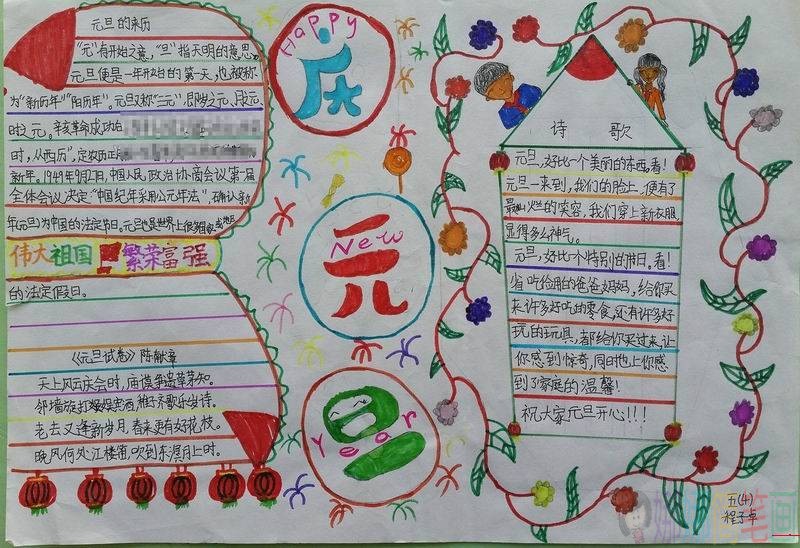 元旦的来历
"元"有开始之意，"旦"指天明的意思。
元旦便是一年开始的第一天，也被称
为"新历年""阳历年"。元旦又称"三元"，即岁之元、月之元、
时之元。辛亥革命成功后
时，从西历"，定农历正
新年。1949年9月27日，中国人民政治协商会议第一届
全体会议决定："中国纪年采用公元年法"，确认
年元旦为中国的法定节日。元旦也是世界上很
伟大祖国 繁荣富强
的法定假日。
《元旦试卷》陈献章
天上风云庆会时，庙谟争遣草茅知。
邻墙旋打娱宾酒，稚子歌乐岁诗。
老去又逢新岁月，春来更有好花枝。
晚风何处江楼笛，吹到东溟月上时。
Happy
庆
New
元
Year
旦
诗 歌
元旦，好比一个美丽的东西，看！
元旦一来到，我们的脸上，便有了
最灿烂的笑容，我们穿上新衣服
显得多么神气。
元旦，好比一个特别的节日。看！
省吃俭用的爸爸妈妈，给你买
来许多好吃的零食，还有许多好
玩的玩具，都给你买过来，让
你感到惊奇，同时也让你感
到了家庭的温馨！
祝大家元旦开心！！！
五(4)
程子卓
笔画